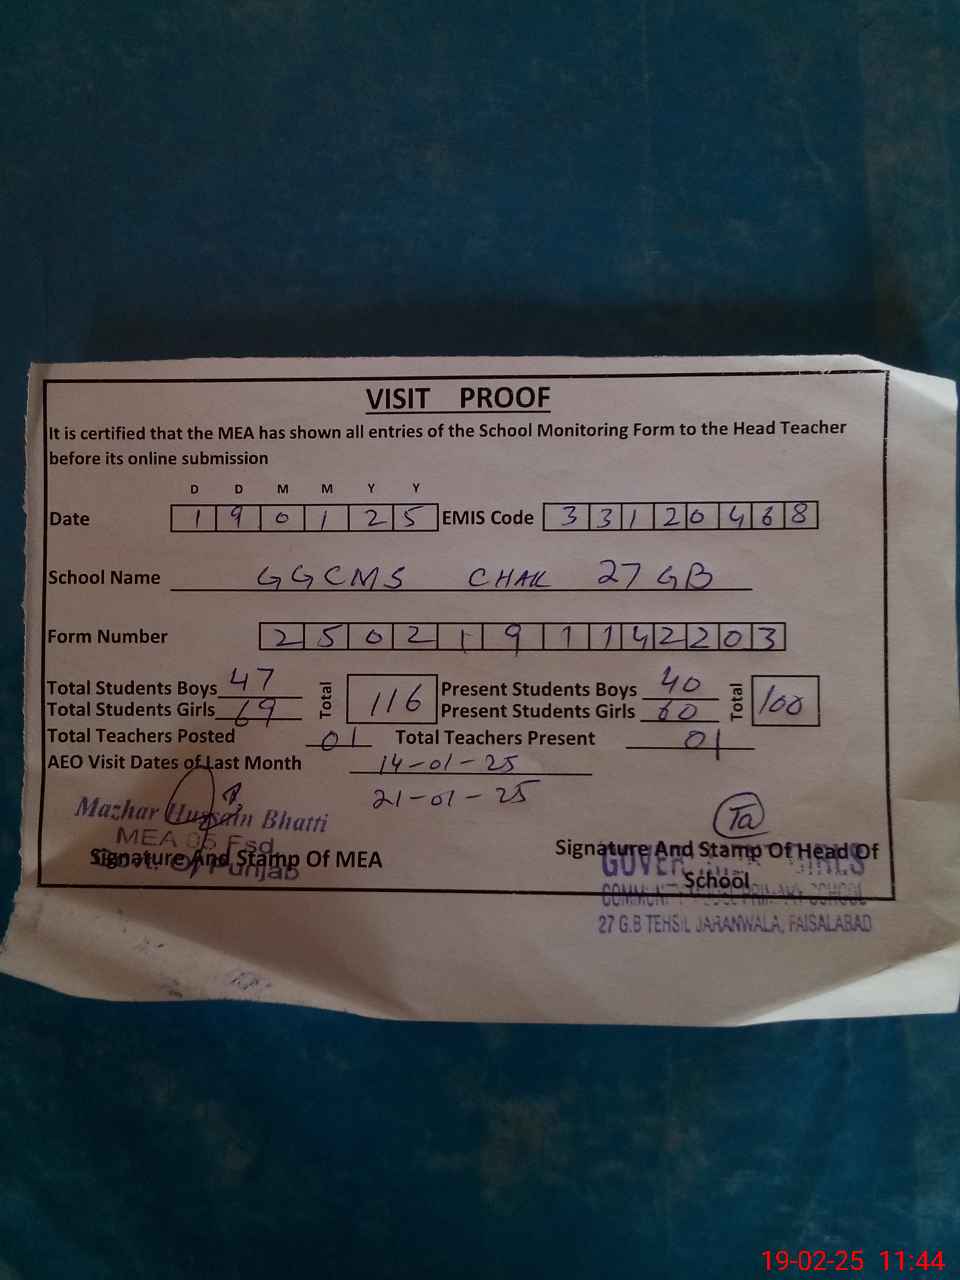 VISIT PROOF
It is certified that the MEA has shown all entries of the School Monitoring Form to the Head Teacher
before its online submission
D D M M Y Y
Date 1 9 0 1 2 5 EMIS Code 3 3 1 2 0 4 6 8
School Name GGCMS CHAK 27 GB
Form Number 2 5 0 2 1 9 1 1 4 2 2 0 3
Total Students Boys 47 Total 116 Present Students Boys 40 Total 100
Total Students Girls 69 Present Students Girls 60
Total Teachers Posted 01 Total Teachers Present 01
AEO Visit Dates of Last Month 14-01-25
21-01-25
Mazhar Hussain Bhatti
MEA 05 Fsd
Govt. Of Punjab
Signature And Stamp Of MEA
Signature And Stamp Of Head Of
School
GIRLS
PRIMARY SCHOOL
27 G.B TEHSIL JARANWALA, FAISALABAD
19-02-25 11:44